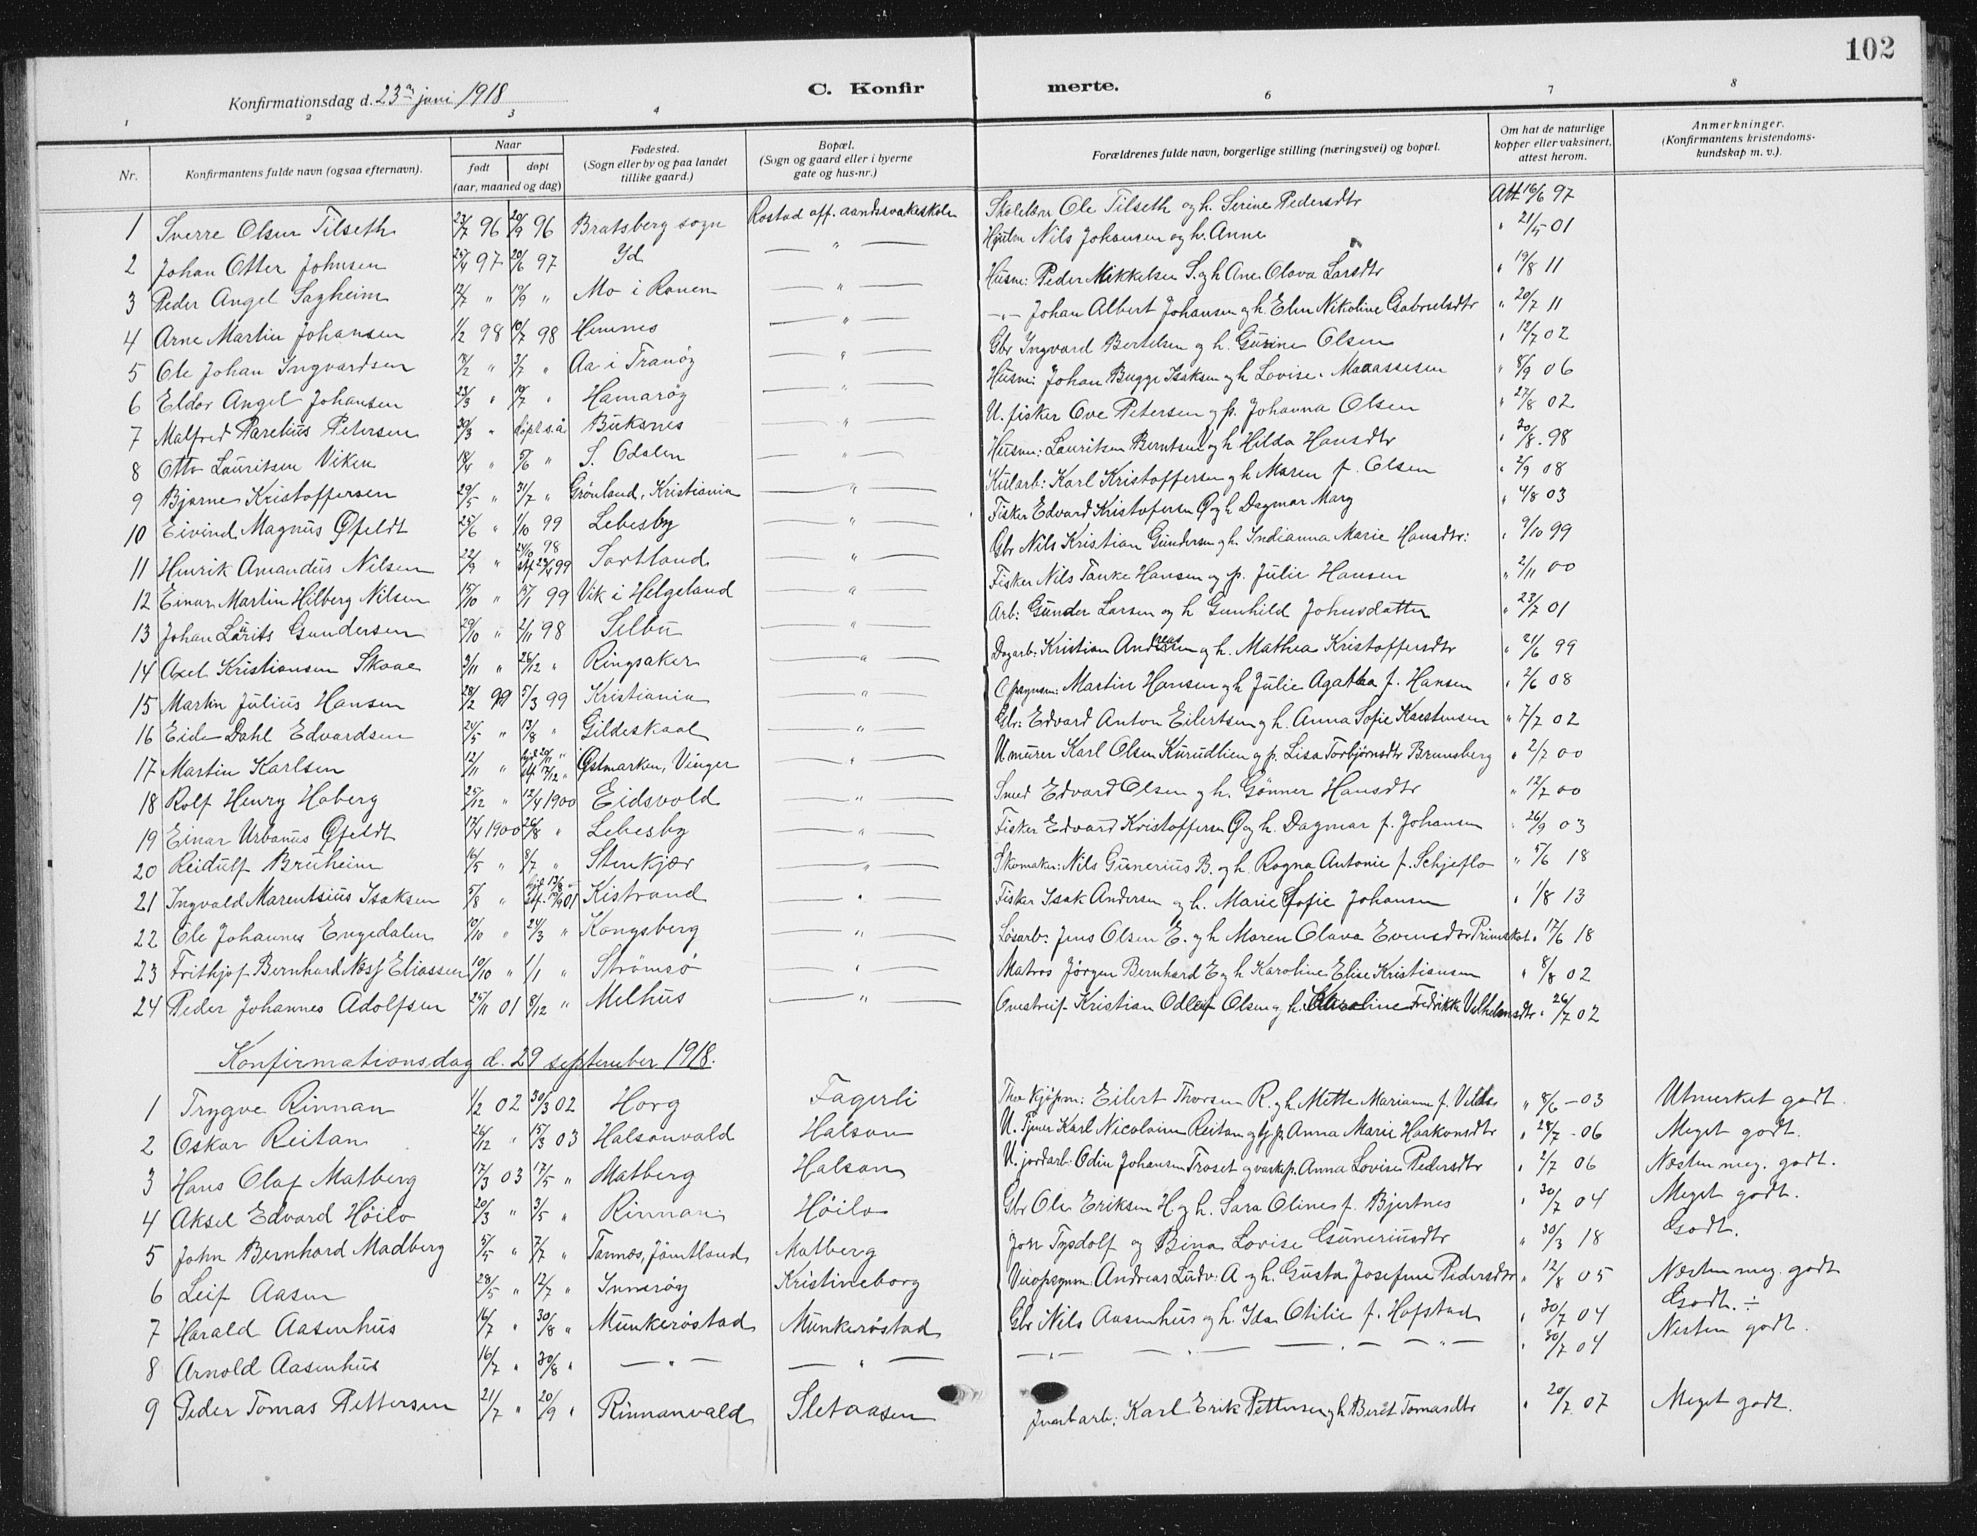 102
Konfirmationsdag d. 23 juni 1918
C. Konfirmerte.
1 2 3 4 6 7 8
Nr. Konfirmantens fulde navn (ogsaa efternavn). Naar født døpt (aar, maaned og dag) Fødested. (Sogn eller by og paa landet tillike gaard.) Bopæl. (Sogn og gaard eller i byerne gate og hus-nr.) Forældrenes fulde navn, borgerlige stilling (næringsvei) og bopæl. Om hat de naturlige kopper eller vaksinert, attest herom. Anmerkninger. (Konfirmantens kristendomskundskap m. v.).
1 Sverre Olsen Tilseth 23/7 96 20/9 96 Bratsberg sogn Rostad off. aandssvakeskole Skolelærer Ole Tilseth og h. Serine Pedersdtr Att 16/6 97
2 Johan Otter Johnsen 25/4 97 20/6 97 Id — " — Nils Johansen og h. Anne " 21/5 01
3 Peder Angel Sagheim 12/7 " 19/9 " Mo i Ranen — " — Husm: Peder Mikkelsen S. og h. Ane Olava Larsdtr " 19/8 11
4 Arne Martin Johansen 1/2 98 10/7 98 Hemnes — " — — " — Johan Albert Johansen og h. Elen Nikoline Gabrielsdtr " 20/7 11
5 Ole Johan Ingvardsen 18/2 " 3/7 " Aa i Tranöy — " — Gbr Ingvard Bertelsen og h. Gusine Olsen " 12/7 02
6 Eldor Angel Johansen 23/3 " 19/7 " Hamaröy — " — Husm: Johan Bugge Isaksen og h. Lovise Manassesen " 8/9 06
7 Malfred Parelius Petersen 30/3 " døpt s. å. Buksnes — " — U. fisker Ove Petersen og p. Johanna Olsen " 27/8 02
8 Otto Lauritsen Viken 18/4 " 5/6 " S. Odalen — " — Husm: Lauritsen Berntsen og h. Hilda Hansdtr " 20/8 98
9 Bjarne Kristoffersen 29/5 " 31/7 " Grönland, Kristiania — " — Kularb: Karl Kristoffersen og h. Maren f. Olsen " 2/9 08
10 Eivind Magnus Öfeldt 25/6 " 1/10 99 Lebesby — " — Fisker Edvard Kristofersen Ö og h. Dagmar Marg " 4/8 03
11 Henrik Amandus Nilsen 22/9 " 24/10 98 Stf 99 Sortland — " — Gbr Nils Kristian Gundersen og h. Indianna Marie Hansdtr: " 9/10 99
12 Einar Martin Hilberg Nilsen 15/10 " 15/1 99 Vik i Helgeland — " — Fisker Nils Tanke Hansen og p. Julie Hansen " 2/11 00
13 Johan Laurits Gundersen 29/10 " 2/11 98 Selbu — " — Arb: Gunder Larsen og h. Gunhild Johnsdatter " 23/7 01
14 Axel Kristiansen Skaae 9/11 " 26/12 " Ringsaker — " — Dagarb: Kristian Andreassen og h. Mathea Kristoffersdtr " 21/6 99
15 Martin Julius Hansen 28/2 99 5/3 99 Kristiania — " — Opsynsm: Martin Hansen og h. Julie Agatha f. Hansen " 2/6 08
16 Eide Dahl Edvardsen 24/5 " 13/8 " Gildeskaal — " — Gbr: Edvard Anton Eilertsen og h. Anna Sofie Karstensen " 7/7 02
17 Martin Karlsen 12/11 " 20/11 " Stf 17/12 " Östmarken, Vinger — " — U. murer Karl Olsen Kurudlien og p. Lisa Torbjørnsdtr Brunsberg " 2/7 00
18 Rolf Henry Hoberg 25/12 " 12/4 1900 Eidsvold — " — Smed Edvard Olsen og h. Gönner Hansdtr " 12/7 00
19 Einar Urbanus Öfeldt 17/4 1900 26/8 " Lebesby — " — Fisker Edvard Kristoffersen Ö og h. Dagmar f. Johansen " 26/9 03
20 Reidulf Bruheim 16/5 " 8/7 " Stenkjær — " — Skomaker: Nils Gunerius B. og h. Ragna Antonie f. Schjeflo " 5/6 18
21 Ingvald Marentsius Isaksen 5/8 " Stf. 01 Kistrand — " — Fisker Isak Andersen og h. Marie Sofie Johansen " 1/8 13
22 Ole Johannes Engedalen 10/10 " 24/3 " Kongsberg — " — Løsarb: Jens Olsen E. og h. Maren Olava Evensdtr " 17/6 18
23 Frithjof Bernhard Næss Eliassen 10/10 " 1/1 " Strömsö — " — Matros Jörgen Bernhard E og h. Karoline Elise Kristiansen " 8/8 02
24 Peder Johannes Adolfsen 25/11 01 8/12 " Melhus — " — Omstreif. Kristian Odleif Olsen og h. Karoline Fredrikke Vilhelmsdtr " 26/7 02
Konfirmationsdag d. 29 september 1918.
1 Trygve Rinnan 1/2 02 30/3 02 Horg Fagerli Eilert Thorsen R. og h. Mette Marianne f. " 8/6 – 03 Utmerket godt.
2 Oskar Reitan 26/12 " 15/3 03 Halsanvald Halsan U. Karl Nicolaisen Reitan og p. Anna Marie Haakonsdtr " 28/7 – 06 Meget godt.
3 Hans Olaf Matberg 17/3 03 17/5 " Matberg Halsan U. jordarb: Odin Johansen Troset og p. Anna Lovise Pedersdtr " 2/7 06 Næsten meg. godt.
4 Aksel Edvard Höilo 20/3 " 3/5 " Rinnan Höilo Gbr Ole Eriksen H. og h. Sara Oline f. Bjertnes " 30/7 04 Meget godt.
5 John Bernhard Madberg 5/5 " 7/7 " Tannæs, Jämtland Matberg Jon Tysdolf og Bina Lovise Guneriusdtr " 30/3 18 Godt.
6 Leif Aasen 28/5 " 12/7 " Inneröy Kristineborg Andreas Ludv: A og h. Gusta Josefine Pedersdtr " 12/8 05 Næsten meg. godt
7 Harald Aasenhus 16/7 " 30/8 " Munkeröstad Munkeröstad Gbr Nils Aasenhus og h. Ida Otilie f. Hofstad " 30/7 04 Godt. ÷
8 Arnold Aasenhus 16/7 " 30/8 " — " — — " — — " — " 30/7 04 Nesten godt.
9 Peder Tomas Pettersen 21/7 " 20/9 " Rinnanvald Sletaasen Karl Erik Pettersen og h. Berit Tomasdtr " 20/7 07 Meget godt.